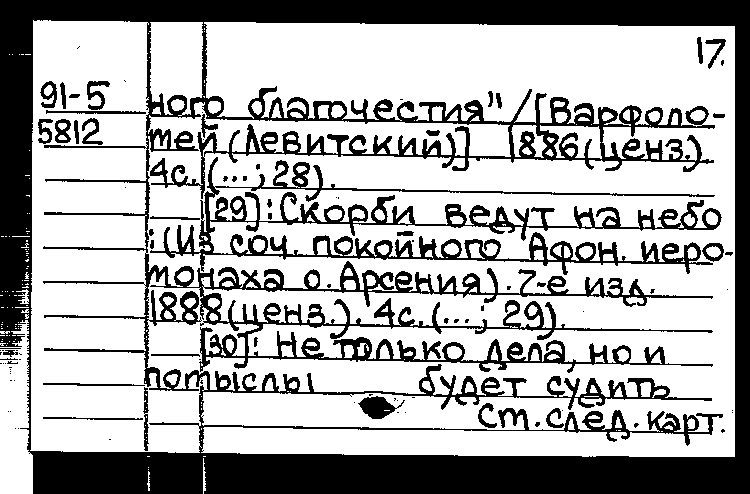 17.
91-5 ного благочестия" /[Варфоло-
5812 мей (Левитский)]. 1886 (ценз.).
4с. (...; 28).
[29]: Скорби ведут на небо
: (Из соч. покойного Афон. иеро-
монаха о. Арсения). 7-е изд.
1888 (ценз.). 4с. (...; 29).
[30]: Не только дела, но и
помыслы будет судить
См. след. карт.